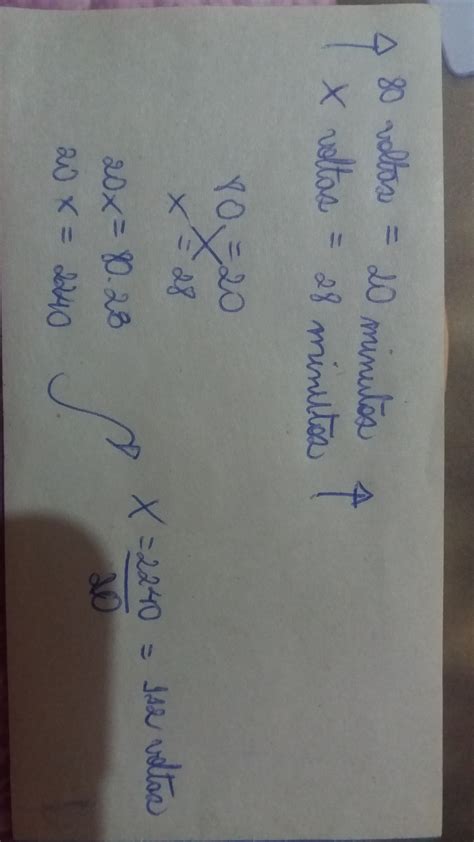 ↑ 80 voltas = 20 minutos ↑
X voltas = 28 minutos
80 = 20
x = 28
20x = 80.28
20x = 2240
X = 2240 = 112 voltas
20